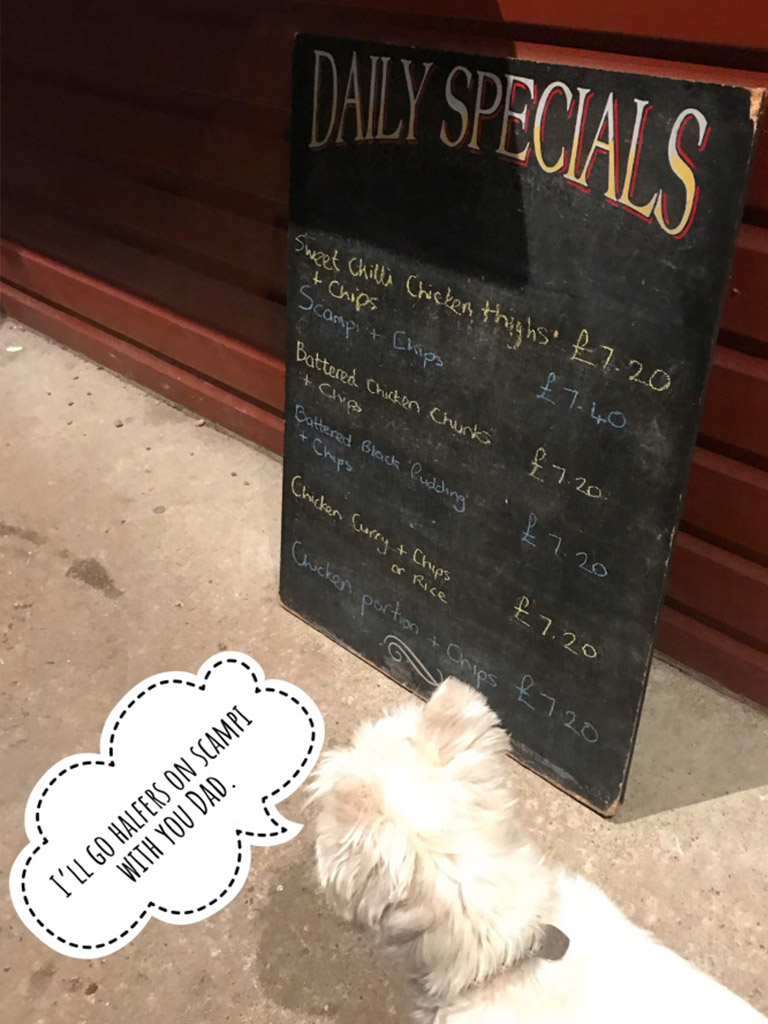 DAILY SPECIALS
Sweet Chilli Chicken thighs £7.20
+ Chips
Scampi + Chips £7.40
Battered Chicken Chunks £7.20
+ Chips
Battered Black Pudding £7.20
+ Chips
Chicken Curry + Chips £7.20
or Rice
Chicken portion + Chips £7.20
I'LL GO HALFERS ON SCAMPI
WITH YOU DAD.